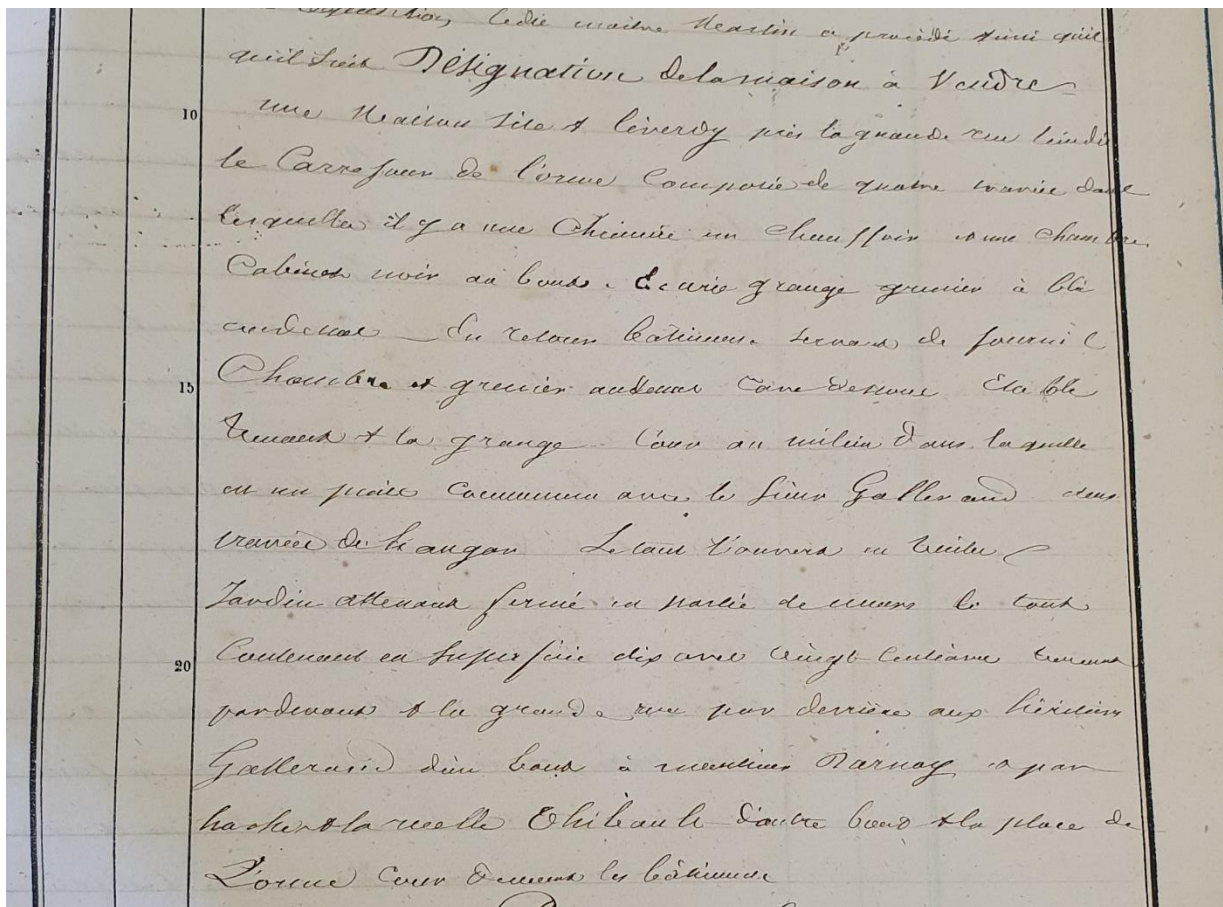 ledit maître Martin a procédé ainsi qu'il
qu'il suit Désignation de la maison à Vendre
10 une Maison sise à Liverdy près la grande rue lieudit
le Carrefour de l'orme Composée de quatre travées dans
lesquelles il y a une Cheminée un Chauffoir une chambre
Cabinet noir au bout. Ecurie grange grenier à blé
audessus En retour bâtiment servant de fournil
15 Chambre et grenier audessus Cave dessous Etable
tenant à la grange Cour au milieu Dans laquelle
est un puits Commun avec le sieur Gallerand deux
travées de hangar Le tout Couvert en tuiles
Jardin attenant fermé en partie de murs le tout
20 Contenant en Superficie dix ares vingt Centiares tenant
pardevant à la grande rue par derrière aux héritiers
Gallerand d'un bout à Darnay et par
hache à la ruelle Thibault d'autre bout à la place de
L'orme Cour devant les bâtiments